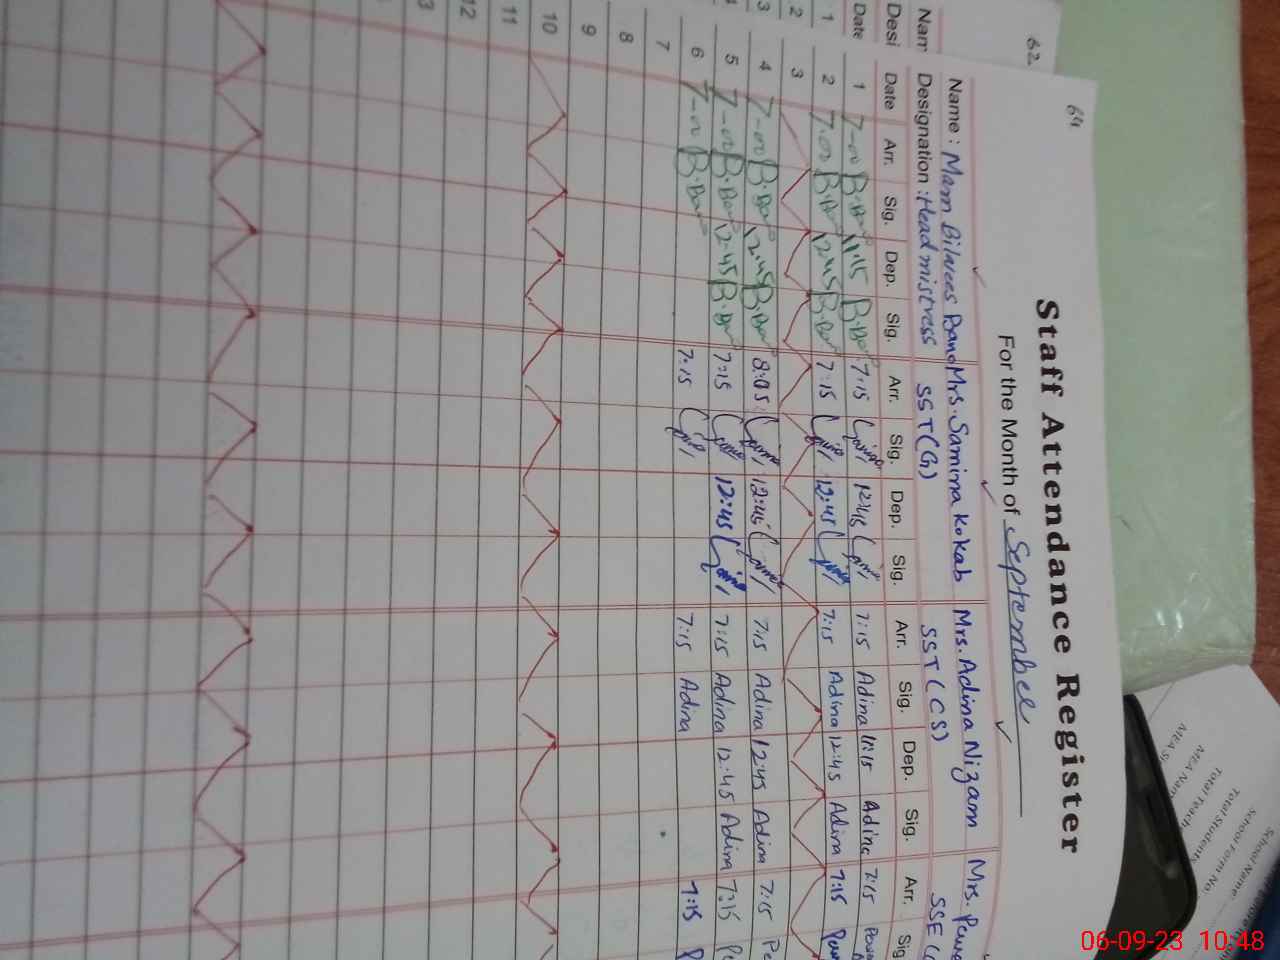 64
Staff Attendance Register
For the Month of September
Name : Mam Bilqees Bano Mrs. Samina Kokab Mrs. Adina Nizam Mrs.
Designation : Headmistress SST(G) SST(CS) SSE(
Date Arr. Sig. Dep. Sig. Arr. Sig. Dep. Sig. Arr. Sig. Dep. Sig. Arr. Sig
1 7-00 B.Bano 11:15 B.Bano 7:15 12:45 7:15 Adina 11:15 Adina 7:15
2 7-00 B.Bano 12:45 B.Bano 7:15 12:45 7:15 Adina 12:45 Adina 7:15
3
4 7-00 B.Bano 12:45 B.Bano 8:05 12:45 7:15 Adina 12:45 Adina 7:15
5 7-00 B.Bano 12:45 B.Bano 7:15 12:45 7:15 Adina 12:45 Adina 7:15
6 7-00 B.Bano 7:15 7:15 Adina 7:15
7
8
9
10
11
12
62
Nam
Desi
Date
1
2
3
School Name
School Form No
Total Students
Total Teach
MEA Nam
MEA Si
06-09-23 10:48